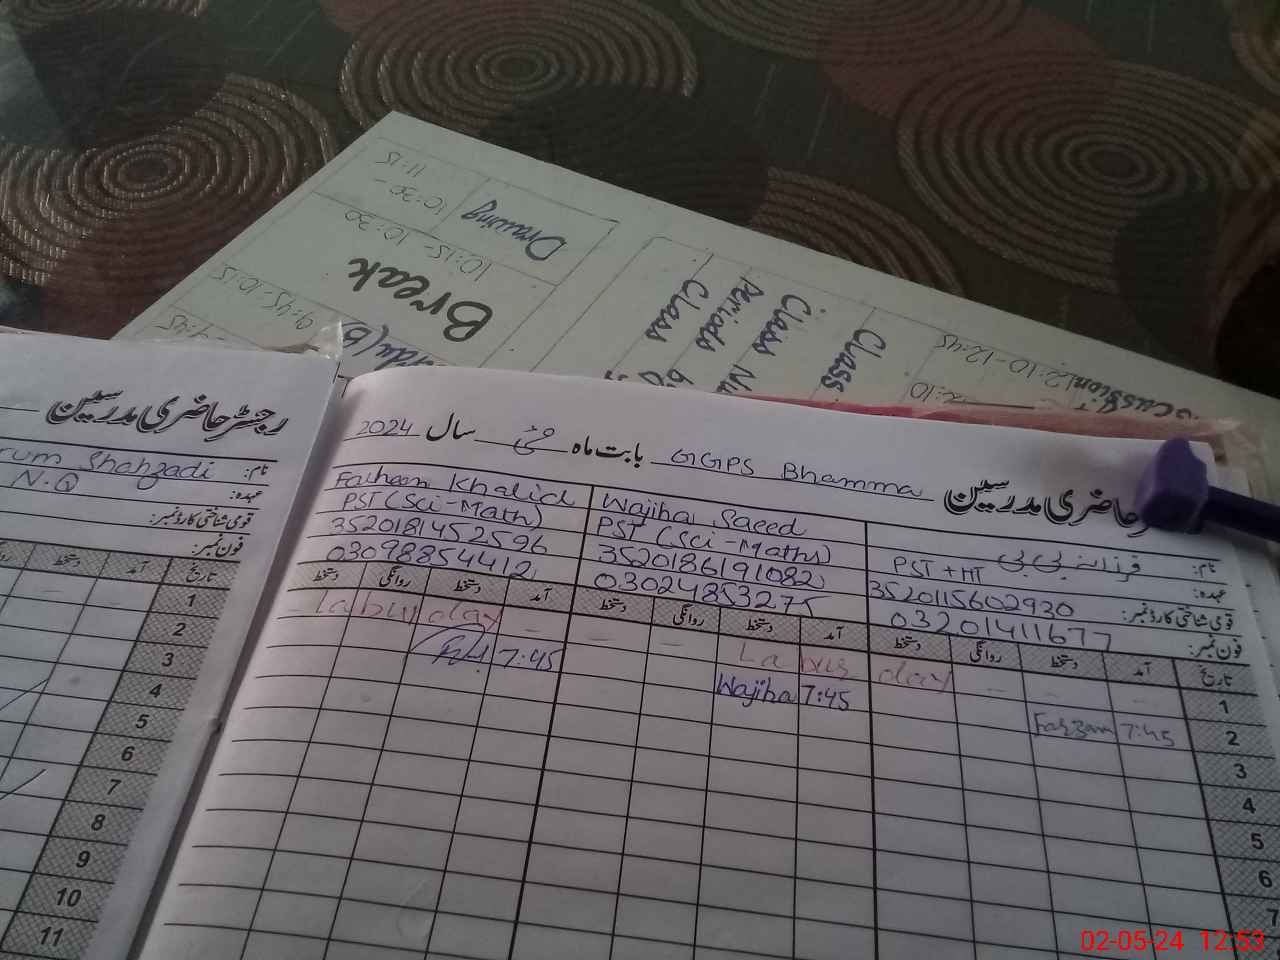 11:15
10:30 -
Drawing
10:15 - 10:30
Break
9:45-10:15
9:45
Class
periods
Class
Class Nu
Class
12:10-12:45
رجسٹر حاضری مدرسین
نام:
Shahzadi
عہدہ:
N.Q
قومی شناختی کارڈ نمبر:
فون نمبر:
تاریخ آمد دستخط
1
2
3
4
5
6
7
8
9
10
11
حاضری مدرسین GGPS Bhamma بابت ماہ مئی سال 2024
نام: فرزانہ بی بی Wajiha Saeed Faheem Khalid
عہدہ: PST + HT PST (Sci-Maths) PST (Sci-Math)
قومی شناختی کارڈ نمبر: 3520115602920 3520186191082 3520181452596
فون نمبر: 03201411677 03024853275 03098854412
تاریخ آمد دستخط روانگی دستخط آمد دستخط روانگی دستخط آمد دستخط روانگی دستخط
1 Labur day Labur day
2 7:45 Farzana 7:45 Wajiha 7:45
3
4
5
6
7
02-05-24 12:53